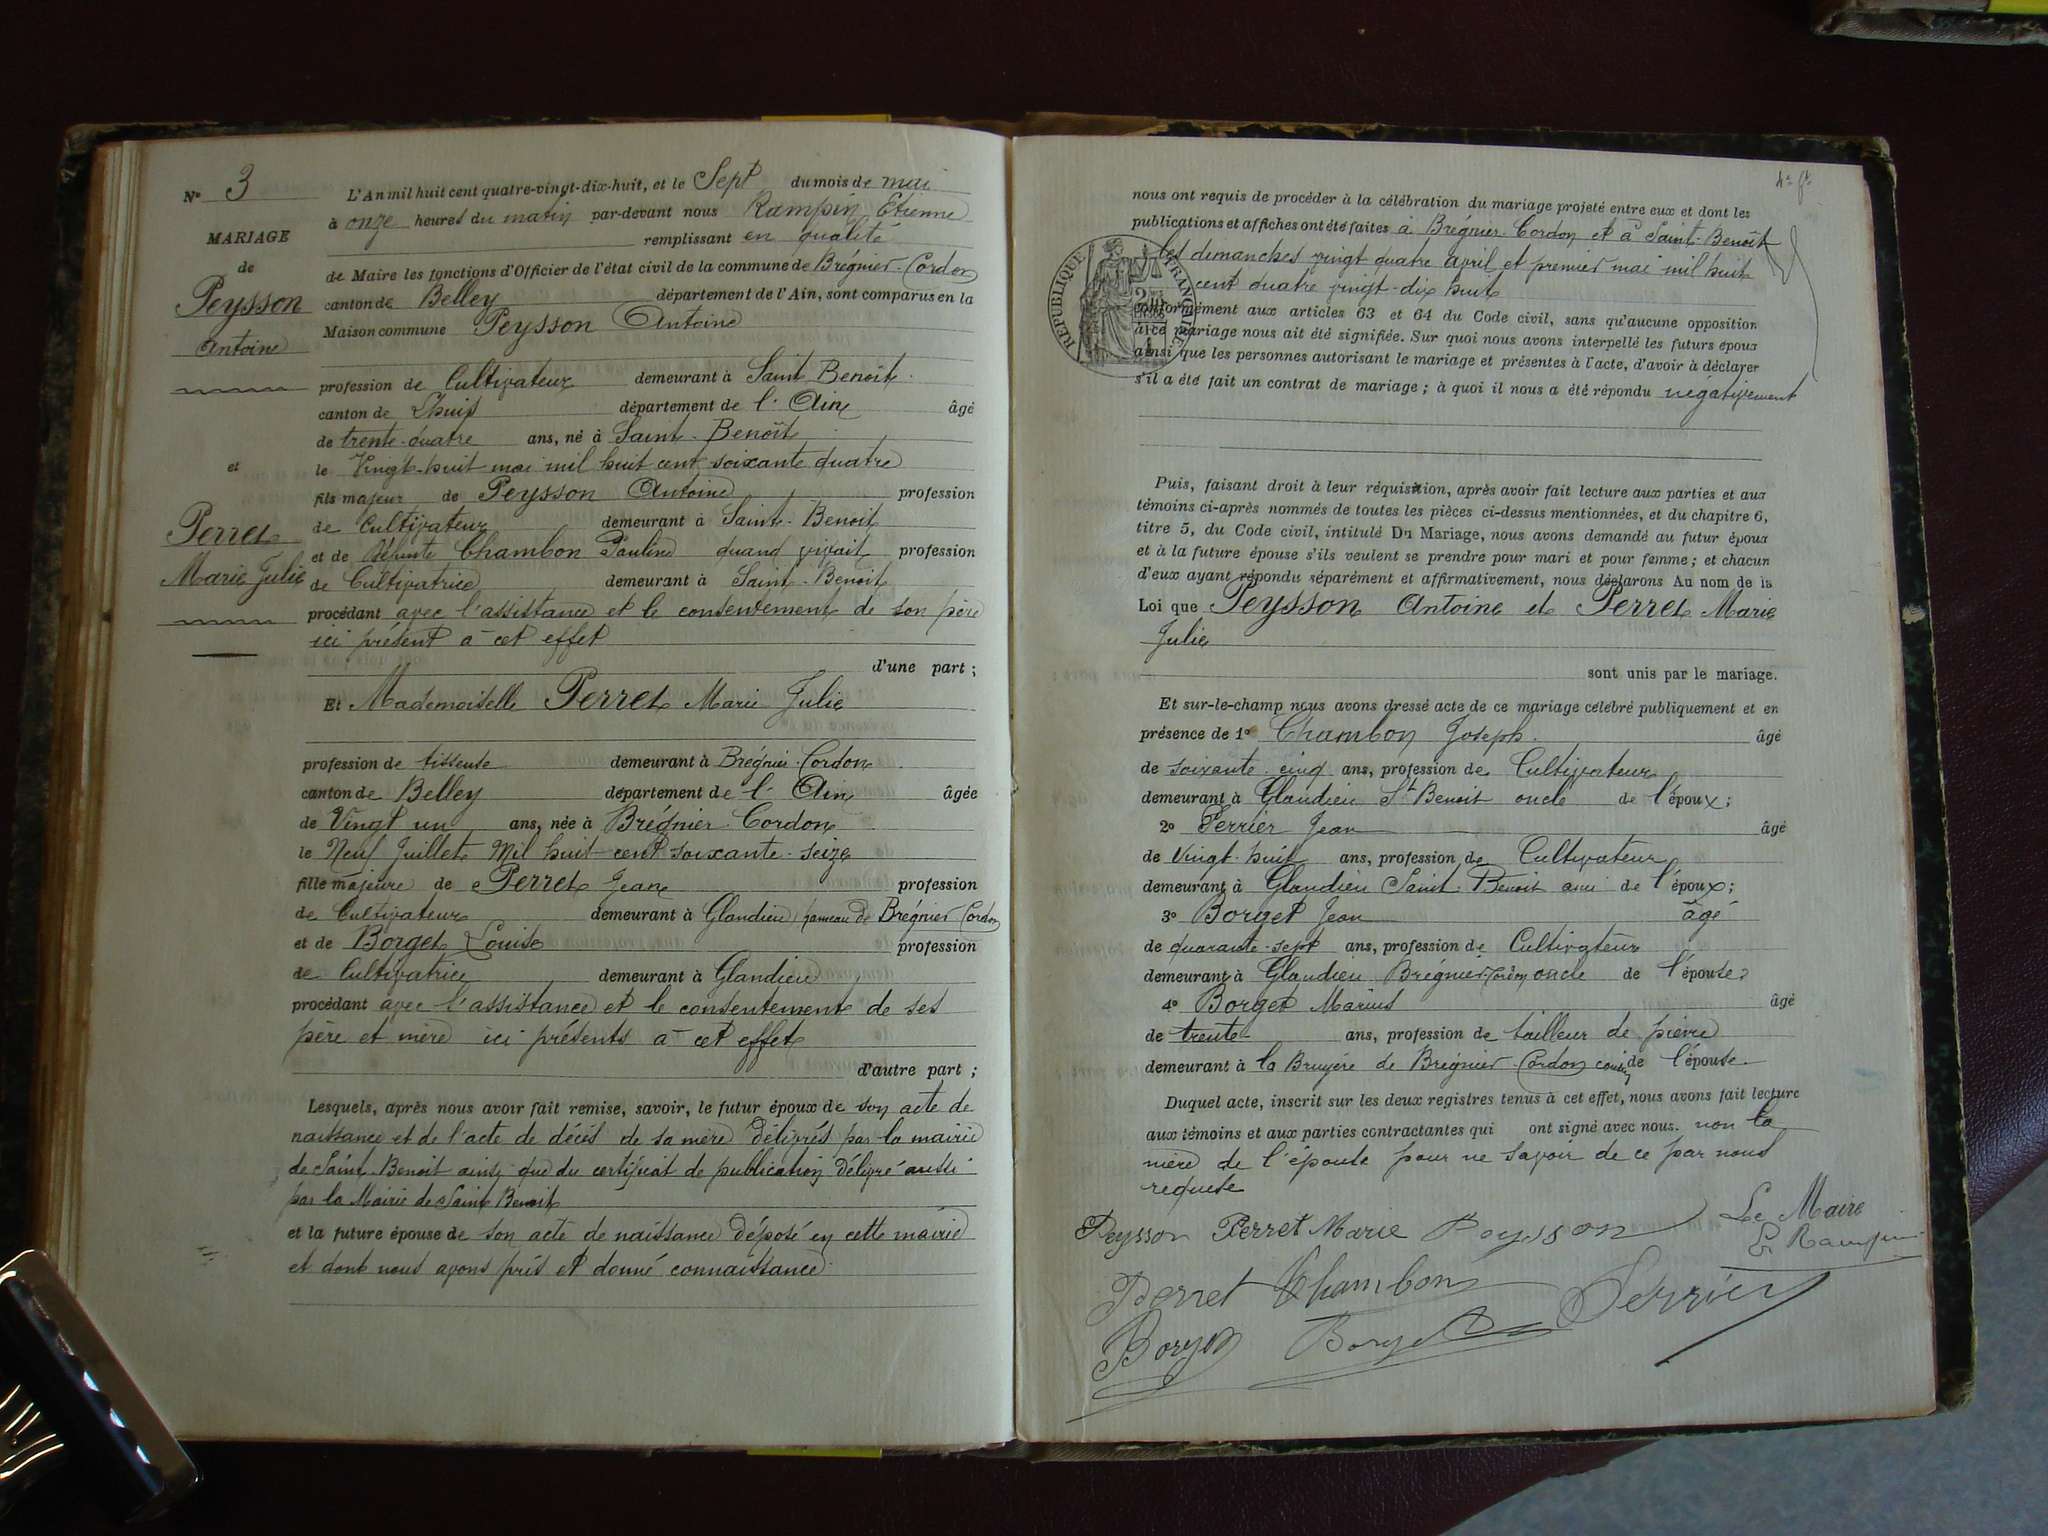 N° 3
MARIAGE
de
Peysson
Antoine
et
Perret
Marie Julie
L'An mil huit cent quatre-vingt-dix-huit, et le Sept du mois de mai
à onze heures du matin par-devant nous Rampin Etienne
remplissant en qualité
de Maire les fonctions d'Officier de l'état civil de la commune de Brégnier-Cordon
canton de Belley département de l'Ain, sont comparus en la
Maison commune Peysson Antoine
profession de Cultivateur demeurant à Saint Benoit
canton de Lhuis département de l'Ain âgé
de trente-quatre ans, né à Saint-Benoît
le Vingt-huit mai mil huit cent soixante quatre
fils majeur de Peysson Antoine profession
de Cultivateur demeurant à Saint-Benoit
et de défunte Chambon Pauline quand vivait profession
de Cultivatrice demeurant à Saint-Benoit
procédant avec l'assistance et le consentement de son père
ici présent à cet effet
d'une part ;
Et Mademoiselle Perret Marie Julie
profession de tisseuse demeurant à Brégnier-Cordon
canton de Belley département de l'Ain âgée
de Vingt un ans, née à Brégnier-Cordon
le Neuf Juillet Mil huit cent soixante-seize
fille majeure de Perret Jean profession
de Cultivateur demeurant à Glandieu, hameau de Brégnier Cordon
et de Borget Louise profession
de Cultivatrice demeurant à Glandieu
procédant avec l'assistance et le consentement de ses
père et mère ici présents à cet effet
d'autre part ;
Lesquels, après nous avoir fait remise, savoir, le futur époux de son acte de
naissance et de l'acte de décès de sa mère délivrés par la mairie
de Saint-Benoit ainsi que du certificat de publication délivré aussi
par la Mairie de Saint Benoit
et la future épouse de son acte de naissance déposé en cette mairie
et dont nous avons pris et donné connaissance.
nous ont requis de procéder à la célébration du mariage projeté entre eux et dont les
publications et affiches ont été faites à Brégnier-Cordon et à Saint-Benoît
les dimanches vingt quatre avril et premier mai mil huit
cent quatre vingt-dix huit
RÉPUBLIQUE FRANÇAISE
conformément aux articles 63 et 64 du Code civil, sans qu'aucune opposition
à ce mariage nous ait été signifiée. Sur quoi nous avons interpellé les futurs époux
ainsi que les personnes autorisant le mariage et présentes à l'acte, d'avoir à déclarer
s'il a été fait un contrat de mariage ; à quoi il nous a été répondu negativement
Puis, faisant droit à leur réquisition, après avoir fait lecture aux parties et aux
témoins ci-après nommés de toutes les pièces ci-dessus mentionnées, et du chapitre 6,
titre 5, du Code civil, intitulé Du Mariage, nous avons demandé au futur époux
et à la future épouse s'ils veulent se prendre pour mari et pour femme ; et chacun
d'eux ayant répondu séparément et affirmativement, nous déclarons Au nom de la
Loi que Peysson Antoine et Perret Marie
Julie
sont unis par le mariage.
Et sur-le-champ nous avons dressé acte de ce mariage célébré publiquement et en
présence de 1° Chambon Joseph. âgé
de soixante-cinq ans, profession de Cultivateur
demeurant à Glandieu St Benoit oncle de l'époux ;
2° Perrier Jean âgé
de Vingt-huit ans, profession de Cultivateur
demeurant à Glandieu Saint-Benoit ami de l'époux ;
3° Borget Jean âgé
de quarante-sept ans, profession de Cultivateur
demeurant à Glandieu Brégnier-Cordon oncle de l'épouse ;
4° Borget Marius âgé
de trente ans, profession de tailleur de pierre
demeurant à la Bruyère de Brégnier-Cordon cousin de l'épouse
Duquel acte, inscrit sur les deux registres tenus à cet effet, nous avons fait lecture
aux témoins et aux parties contractantes qui ont signé avec nous. non la
mère de l'épouse pour ne savoir de ce par nous
requise
Peysson Perret Marie Peysson Le Maire
E. Rampin
Perret Chambon Perrier
Borget Borget